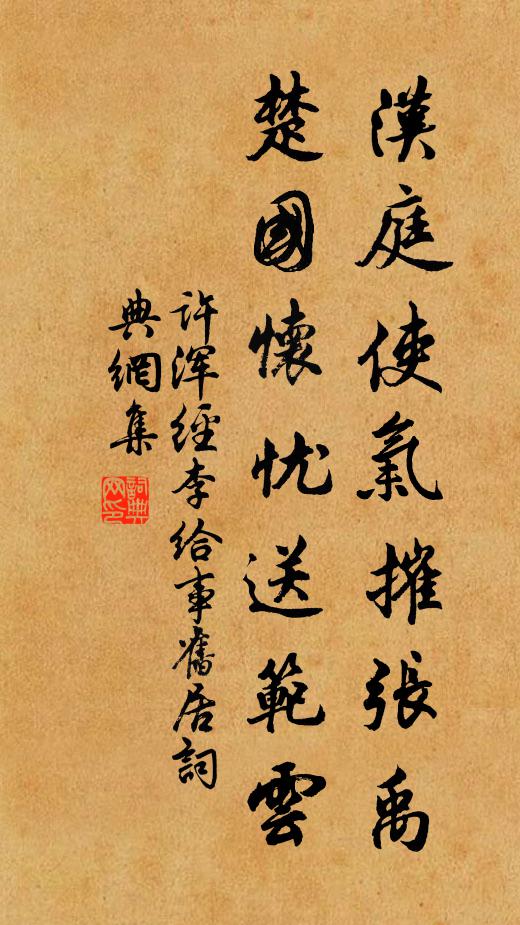 漢庭使氣摧張禹
楚國懷忧送範雲
许渾經李給事舊居詞
典網集
詞典網印